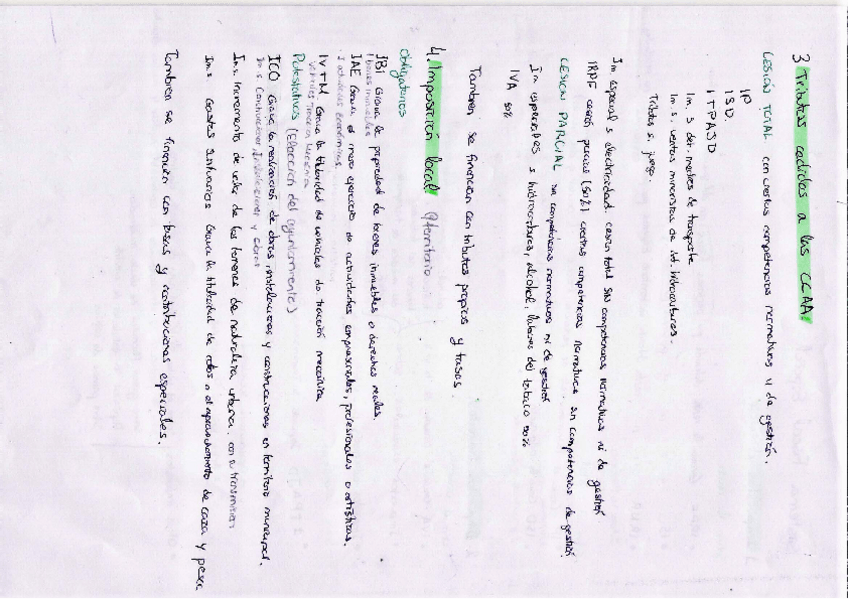 3 Tributos cedidos a las CCAA
CESIÓN TOTAL con ciertas competencias normativas y de gestión.
IP
ISD.
ITPAJD
Im. s det. medios de transporte
Im. s. ventas minoristas de det. hidrocarburos.
Tributos s. juego.
Im. especial s electricidad. cesión total sin competencias normativas ni de gestión
IRPF cesión parcial (50%) ciertas competencias normativas sin competencias de gestión
CESIÓN PARCIAL sin competencias normativas ni de gestión
Im especiales s hidrocarburos, alcohol, labores del tabaco
IVA 50%
También se financian con tributos propios y tasas.
4. Imposición local (territorio
Obligatorios
IBI Grava la propiedad de bienes inmuebles o derechos reales.
(bienes inmuebles
IAE Grava el mero ejercicio de actividades empresariales, profesionales o artísticas.
actividades económicas
IVTM Grava la titularidad de vehículos de tracción mecánica
Vehículos Tracción Mecánica
Potestativos (Elección del ayuntamiento)
ICO Grava la realización de obras, instalaciones y construcciones en territorio municipal.
Im. s. Construcciones, Instalaciones y obras
Im. s. Incremento de valor de los terrenos de naturaleza urbana. con su transmisión
Im. s Gastos suntuarios Grava la titularidad de cotos o el aprovechamiento de caza y pesca
También se financian con tasas y contribuciones especiales.